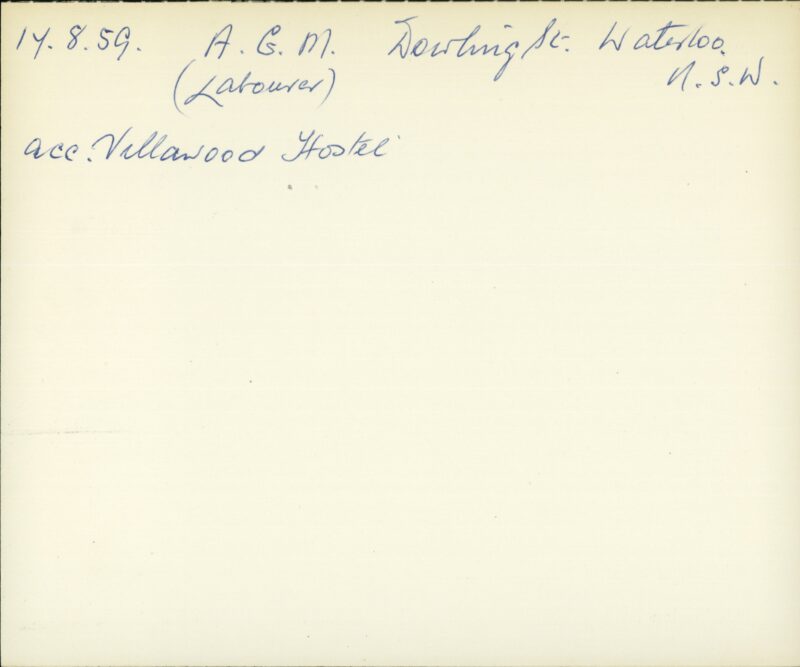 17.8.59. A.G.M. Dowling St. Waterloo.
(Labourer) N.S.W.
acc. Villawood Hostel